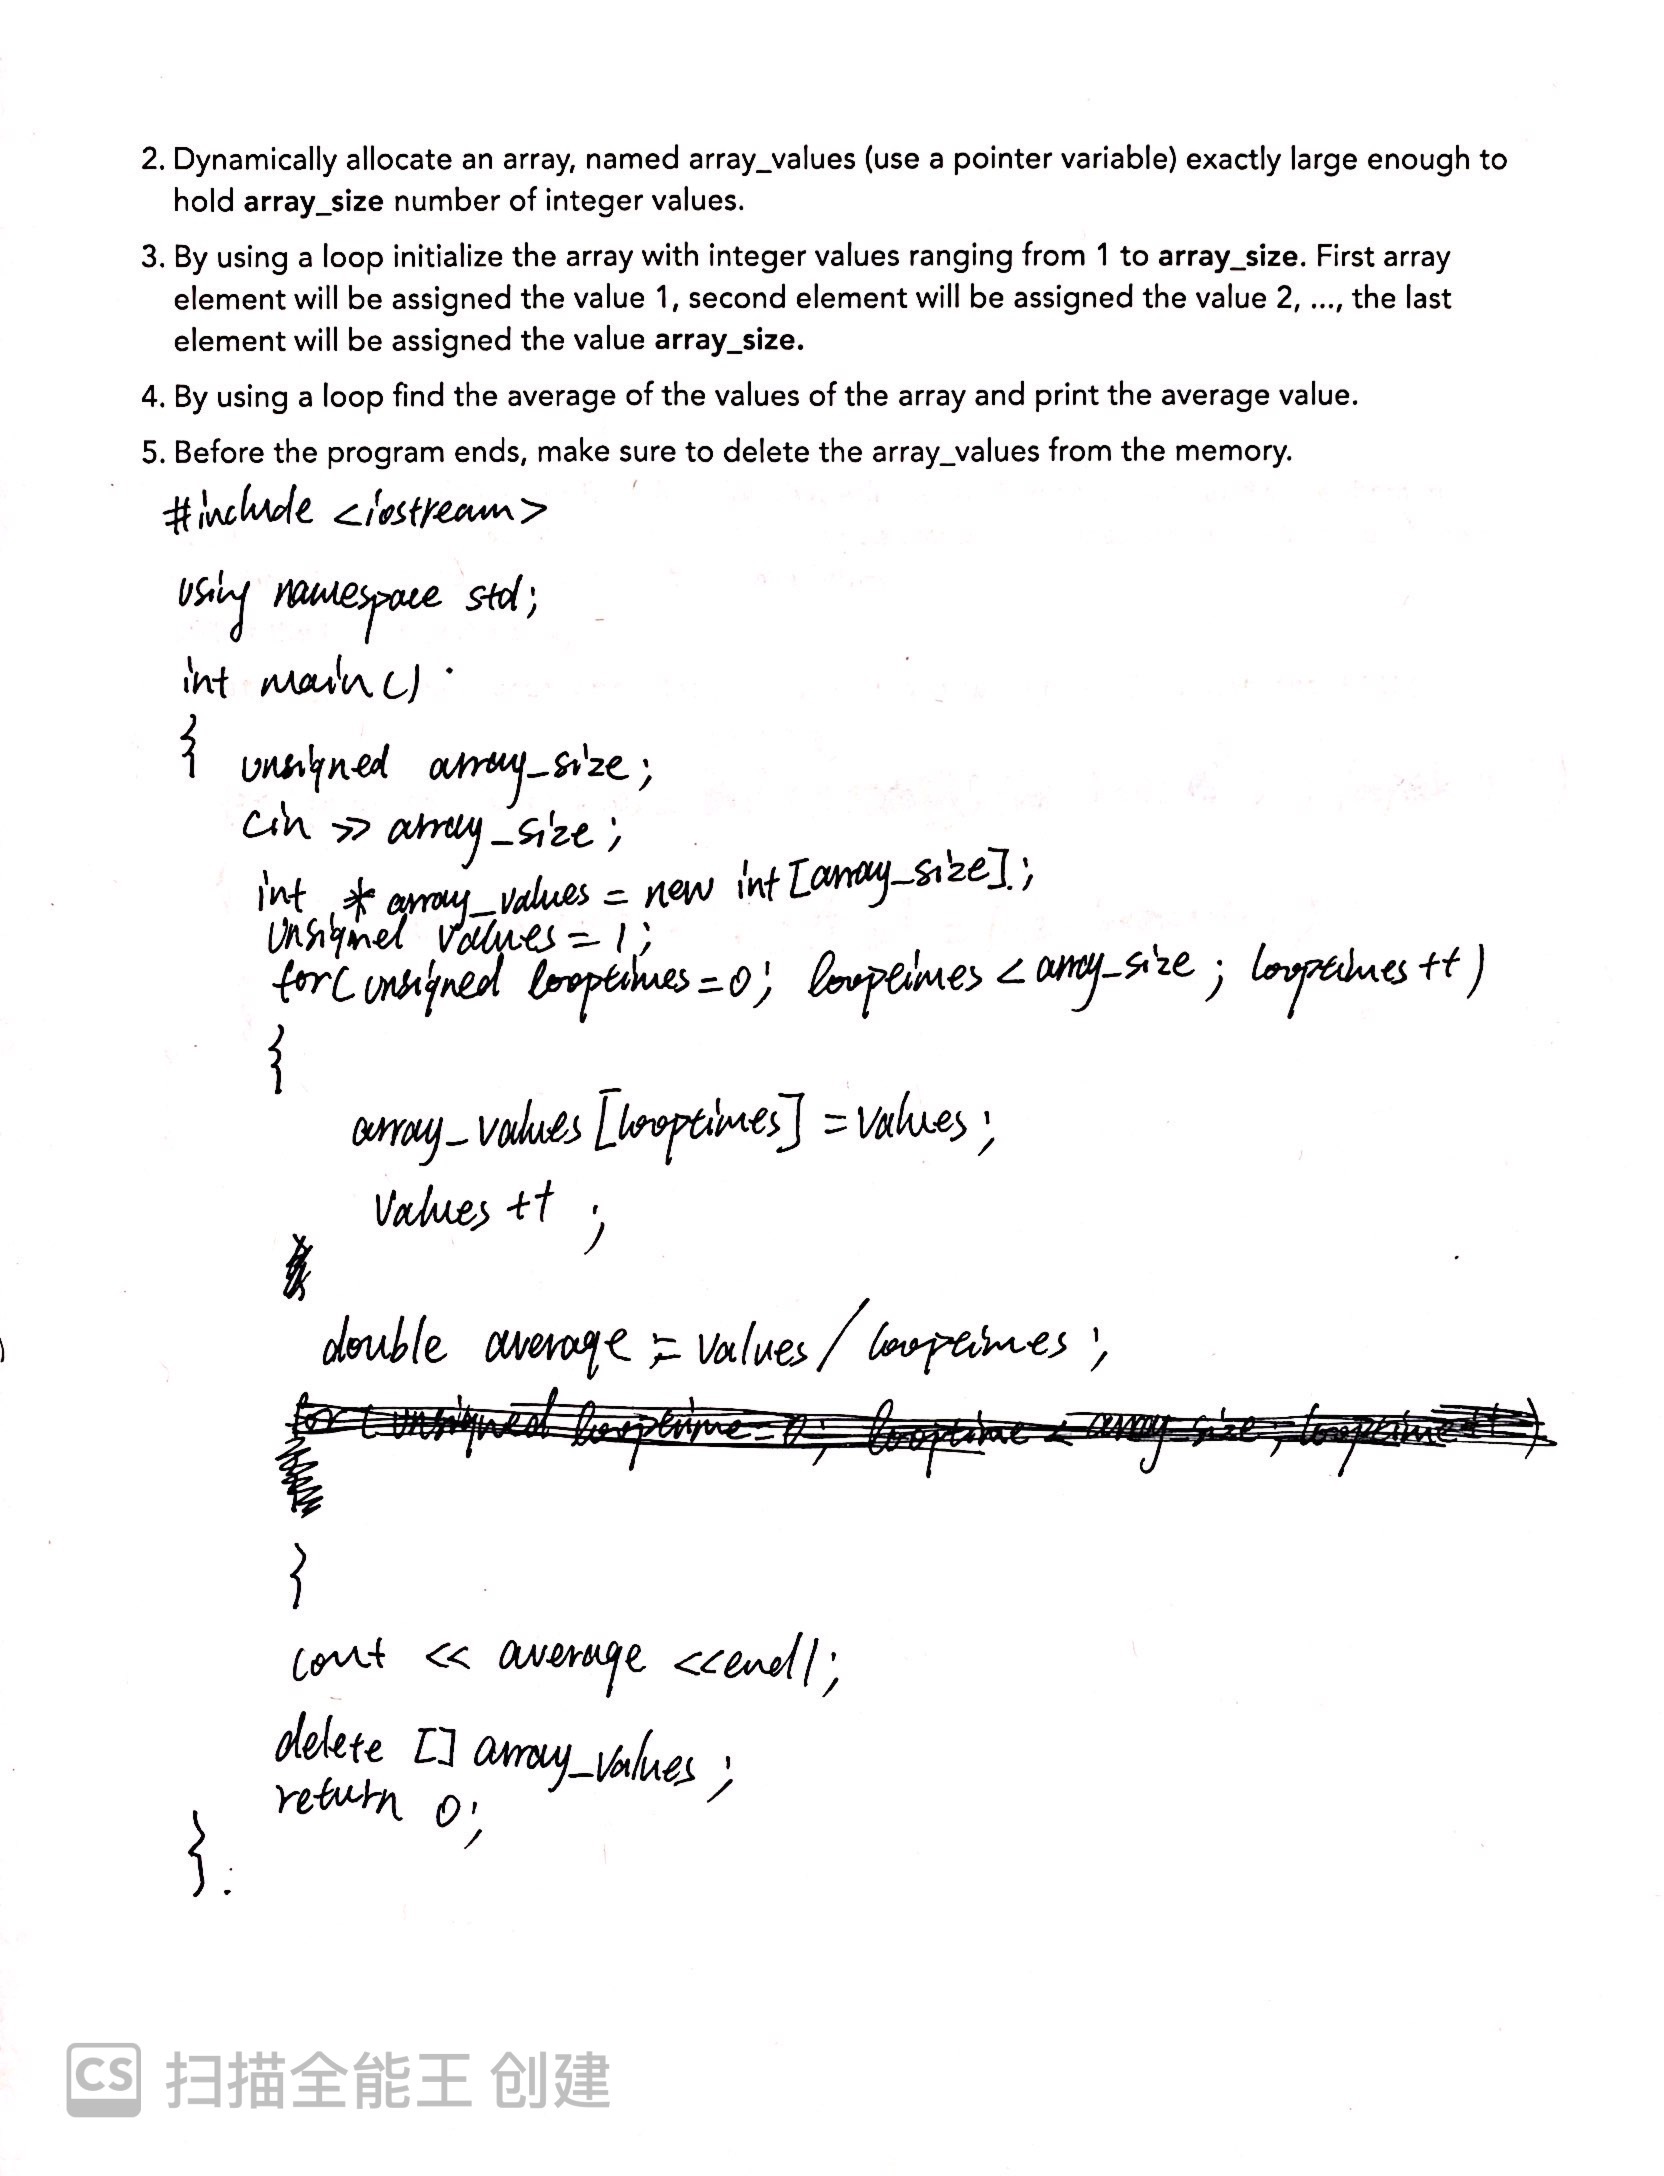 2. Dynamically allocate an array, named array_values (use a pointer variable) exactly large enough to
hold array_size number of integer values.
3. By using a loop initialize the array with integer values ranging from 1 to array_size. First array
element will be assigned the value 1, second element will be assigned the value 2, ..., the last
element will be assigned the value array_size.
4. By using a loop find the average of the values of the array and print the average value.
5. Before the program ends, make sure to delete the array_values from the memory.
#include <iostream>
using namespace std;
int main()
{ unsigned array_size;
cin >> array_size;
int * array_values = new int [array_size];
unsigned values = 1;
for( unsigned looptimes = 0; looptimes < array_size; looptimes ++)
{
array_values [looptimes] = values;
values ++ ;
double average = values / looptimes ;
for ( unsigned looptime = 0; looptime < array_size; looptime ++)
}
cout << average << endl;
delete [] array_values ;
return 0;
}.
CS 扫描全能王 创建